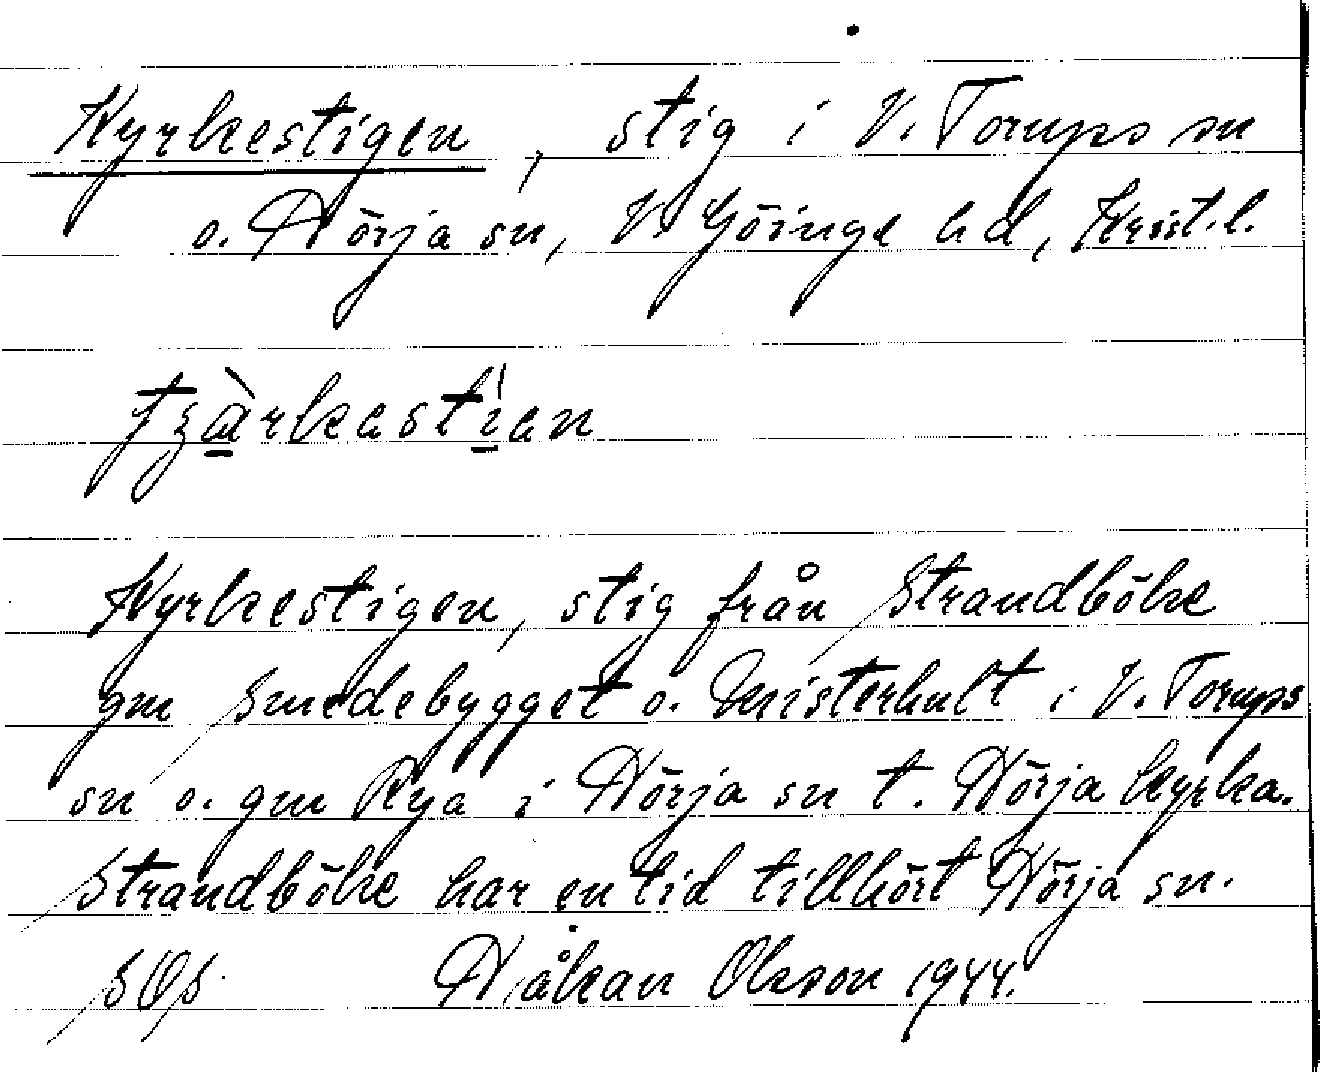 Kyrkestigen, stig i V. Torups sn
o. Hörja sn, V Göinge hd, Krist.l.
tʒàrkastìan
Kyrkestigen, stig från Strandböke
gm Smedebygget o. Misterhult i V. Torups
sn o. gm Rya i Hörja sn t. Hörja kyrka.
Strandböke har en tid tillhört Hörja sn.
SOS Håkan Olsson 1944.